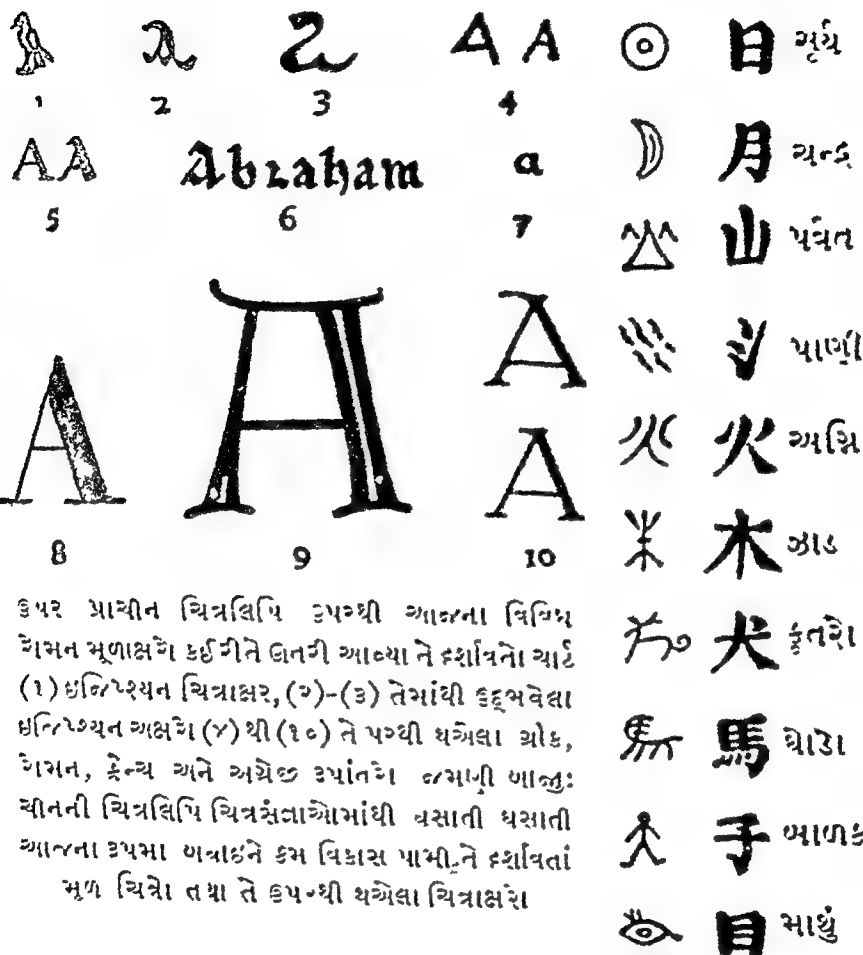 1 2 3 4
A A
A A
5 6 7
Abraham
a
A A A
A
8 9 10
ઉપર પ્રાચીન ચિત્રલિપિ ઉપરથી આજના વિવિધ
રોમન મૂળાક્ષરો કઈ રીતે ઊતરી આવ્યા તે દર્શાવતો ચાર્ટ
(૧) ઇજિપ્શ્યન ચિત્રાક્ષર, (૨)-(૩) તેમાંથી ઉદ્ભવેલા
ઇજિપ્શ્યન અક્ષરો (૪) થી (૧૦) તે પરથી થએલા ગ્રીક,
રોમન, ફ્રેન્ચ અને અંગ્રેજી રૂપાંતરો જમણી બાજુઃ
ચીનની ચિત્રલિપિ ચિત્રસંજ્ઞાઓમાંથી ઘસાતી ઘસાતી
આજના રૂપમાં
દર્શાવતાં
મૂળ ચિત્રો તથા તે ઉપરથી થએલા ચિત્રાક્ષરો
日 સૂર્ય
月 ચન્દ્ર
山 પર્વત
પાણી
火 અગ્નિ
木 ઝાડ
犬 કૂતરો
馬 ઘોડો
子 બાળક
目 માથું